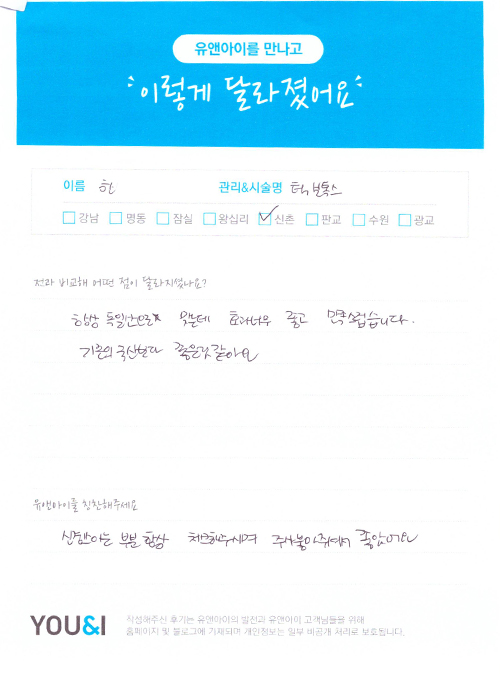 유앤아이를 만나고
이렇게 달라졌어요
이름 한 관리&시술명 턱보톡스
강남 명동 잠실 왕십리 신촌 판교 수원 광교
전과 비교해 어떤 점이 달라지셨나요?
항상 독일산으로 맞는데 효과너무 좋고 만족스럽습니다.
기존의 국산보다 좋은것같아요
유앤아이를 칭찬해주세요
부분 항상 체크해주시며 주사놓아주셔서 좋았어요
YOU&I
작성해주신 후기는 유앤아이의 발전과 유앤아이 고객님들을 위해
홈페이지 및 블로그에 기재되며 개인정보는 일부 비공개 처리로 보호됩니다.